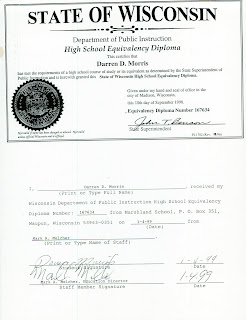 STATE OF WISCONSIN
Department of Public Instruction
High School Equivalency Diploma
This certifies that
Darren D. Morris
has met the requirements of a high school course of study or its equivalent as determined by the State Superintendent of
Public Instruction and is herewith granted this State of Wisconsin High School Equivalency Diploma.
Given under my hand and seal of office in the
city of Madison, Wisconsin,
this 10th day of September 1998.
Equivalency Diploma Number 167634
State Superintendent
I, Darren D. Morris received my
(Print or Type Full Name)
Wisconsin Department of Public Instruction High School Equivalency
Diploma Number: 167634 from Marshland School, P. O. Box 351,
Waupun, Wisconsin 53963-0351 on 1-4-99 from
(Date)
Mark A. Melcher
(Print or Type Name of Staff)
1-4-99
Student Signature Date
1-4-99
Mark A. Melcher, Education Director Date
Staff Member Signature